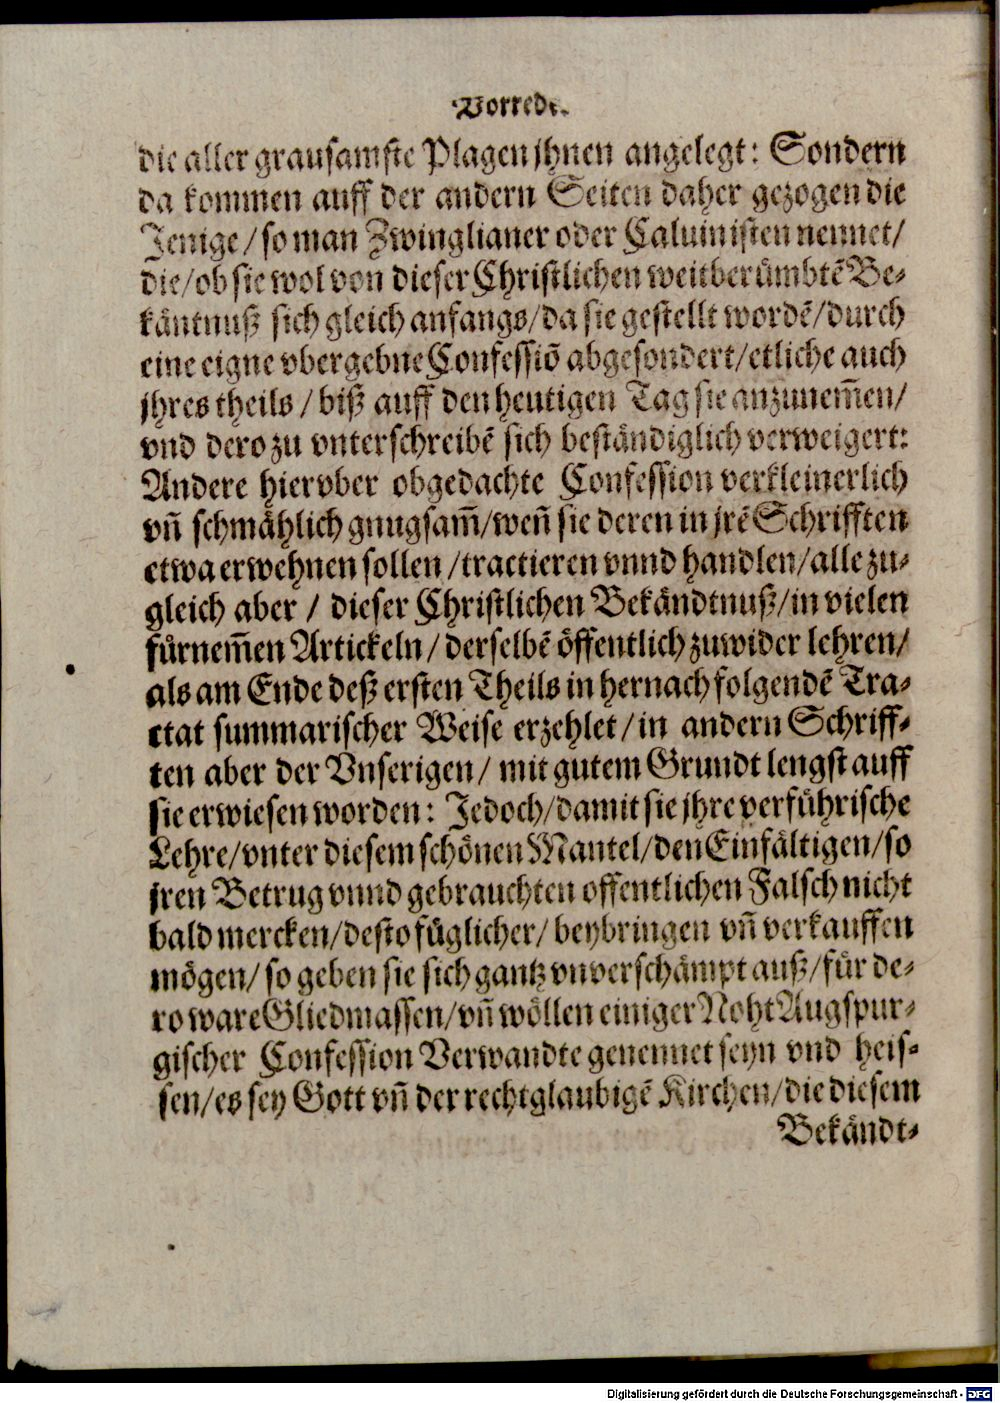 Vorrede.
die aller grausamste Plagen jhnen angelegt: Sondern
da kommen auff der andern Seiten daher gezogen die
Jenige / so man Zwinglianer oder Caluinisten nennet /
die / ob sie wol von dieser Christlichen weitberümbtē Be-
käntnuß sich gleich anfangs / da sie gestellt wordē / durch
eine eigne vbergebne Confessiō abgesondert / etliche auch
jhres theils / biß auff den heutigen Tag sie anzunem̃en /
vnd dero zu vnterschreibē sich beständiglich verweigert:
Andere hiervber obgedachte Confession verkleinerlich
vñ schmählich gnugsam̃ / weñ sie deren in jrē Schrifften
etwa erwehnen sollen / tractieren vnnd handlen / alle zu-
gleich aber / dieser Christlichen Bekändtnuß / in vielen
fürnem̃en Artickeln / derselbē öffentlich zuwider lehren /
als am Ende deß ersten Theils in hernach folgendē Tra-
ctat summarischer Weise erzehlet / in andern Schriff-
ten aber der Vnserigen / mit gutem Grundt lengst auff
sie erwiesen worden: Jedoch / damit sie jhre verführische
Lehre / vnter diesem schönen Mantel / den Einfältigen / so
jren Betrug vnnd gebrauchten offentlichen Falsch nicht
bald mercken / desto füglicher / beybringen vñ verkauffen
mögen / so geben sie sich gantz vnverschämpt auß / für de-
ro ware Gliedmassen / vñ wöllen einiger Noht Augspur-
gischer Confession Verwandte genennet seyn vnd heis-
sen / es sey Gott vñ der rechtglaubigē Kirchen / die diesem
Bekändt-
Digitalisierung gefördert durch die Deutsche Forschungsgemeinschaft - DFG